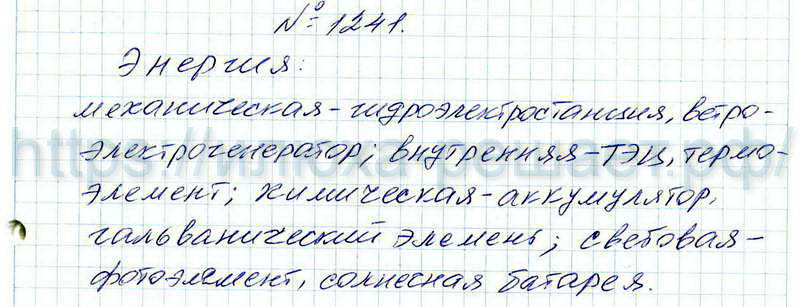 № 1241.
Энергия:
механическая - гидроэлектростанция, ветро-
электрогенератор; внутренняя - ТЭЦ, термо-
элемент; химическая - аккумулятор,
гальванический элемент; световая -
фотоэлемент, солнечная батарея.